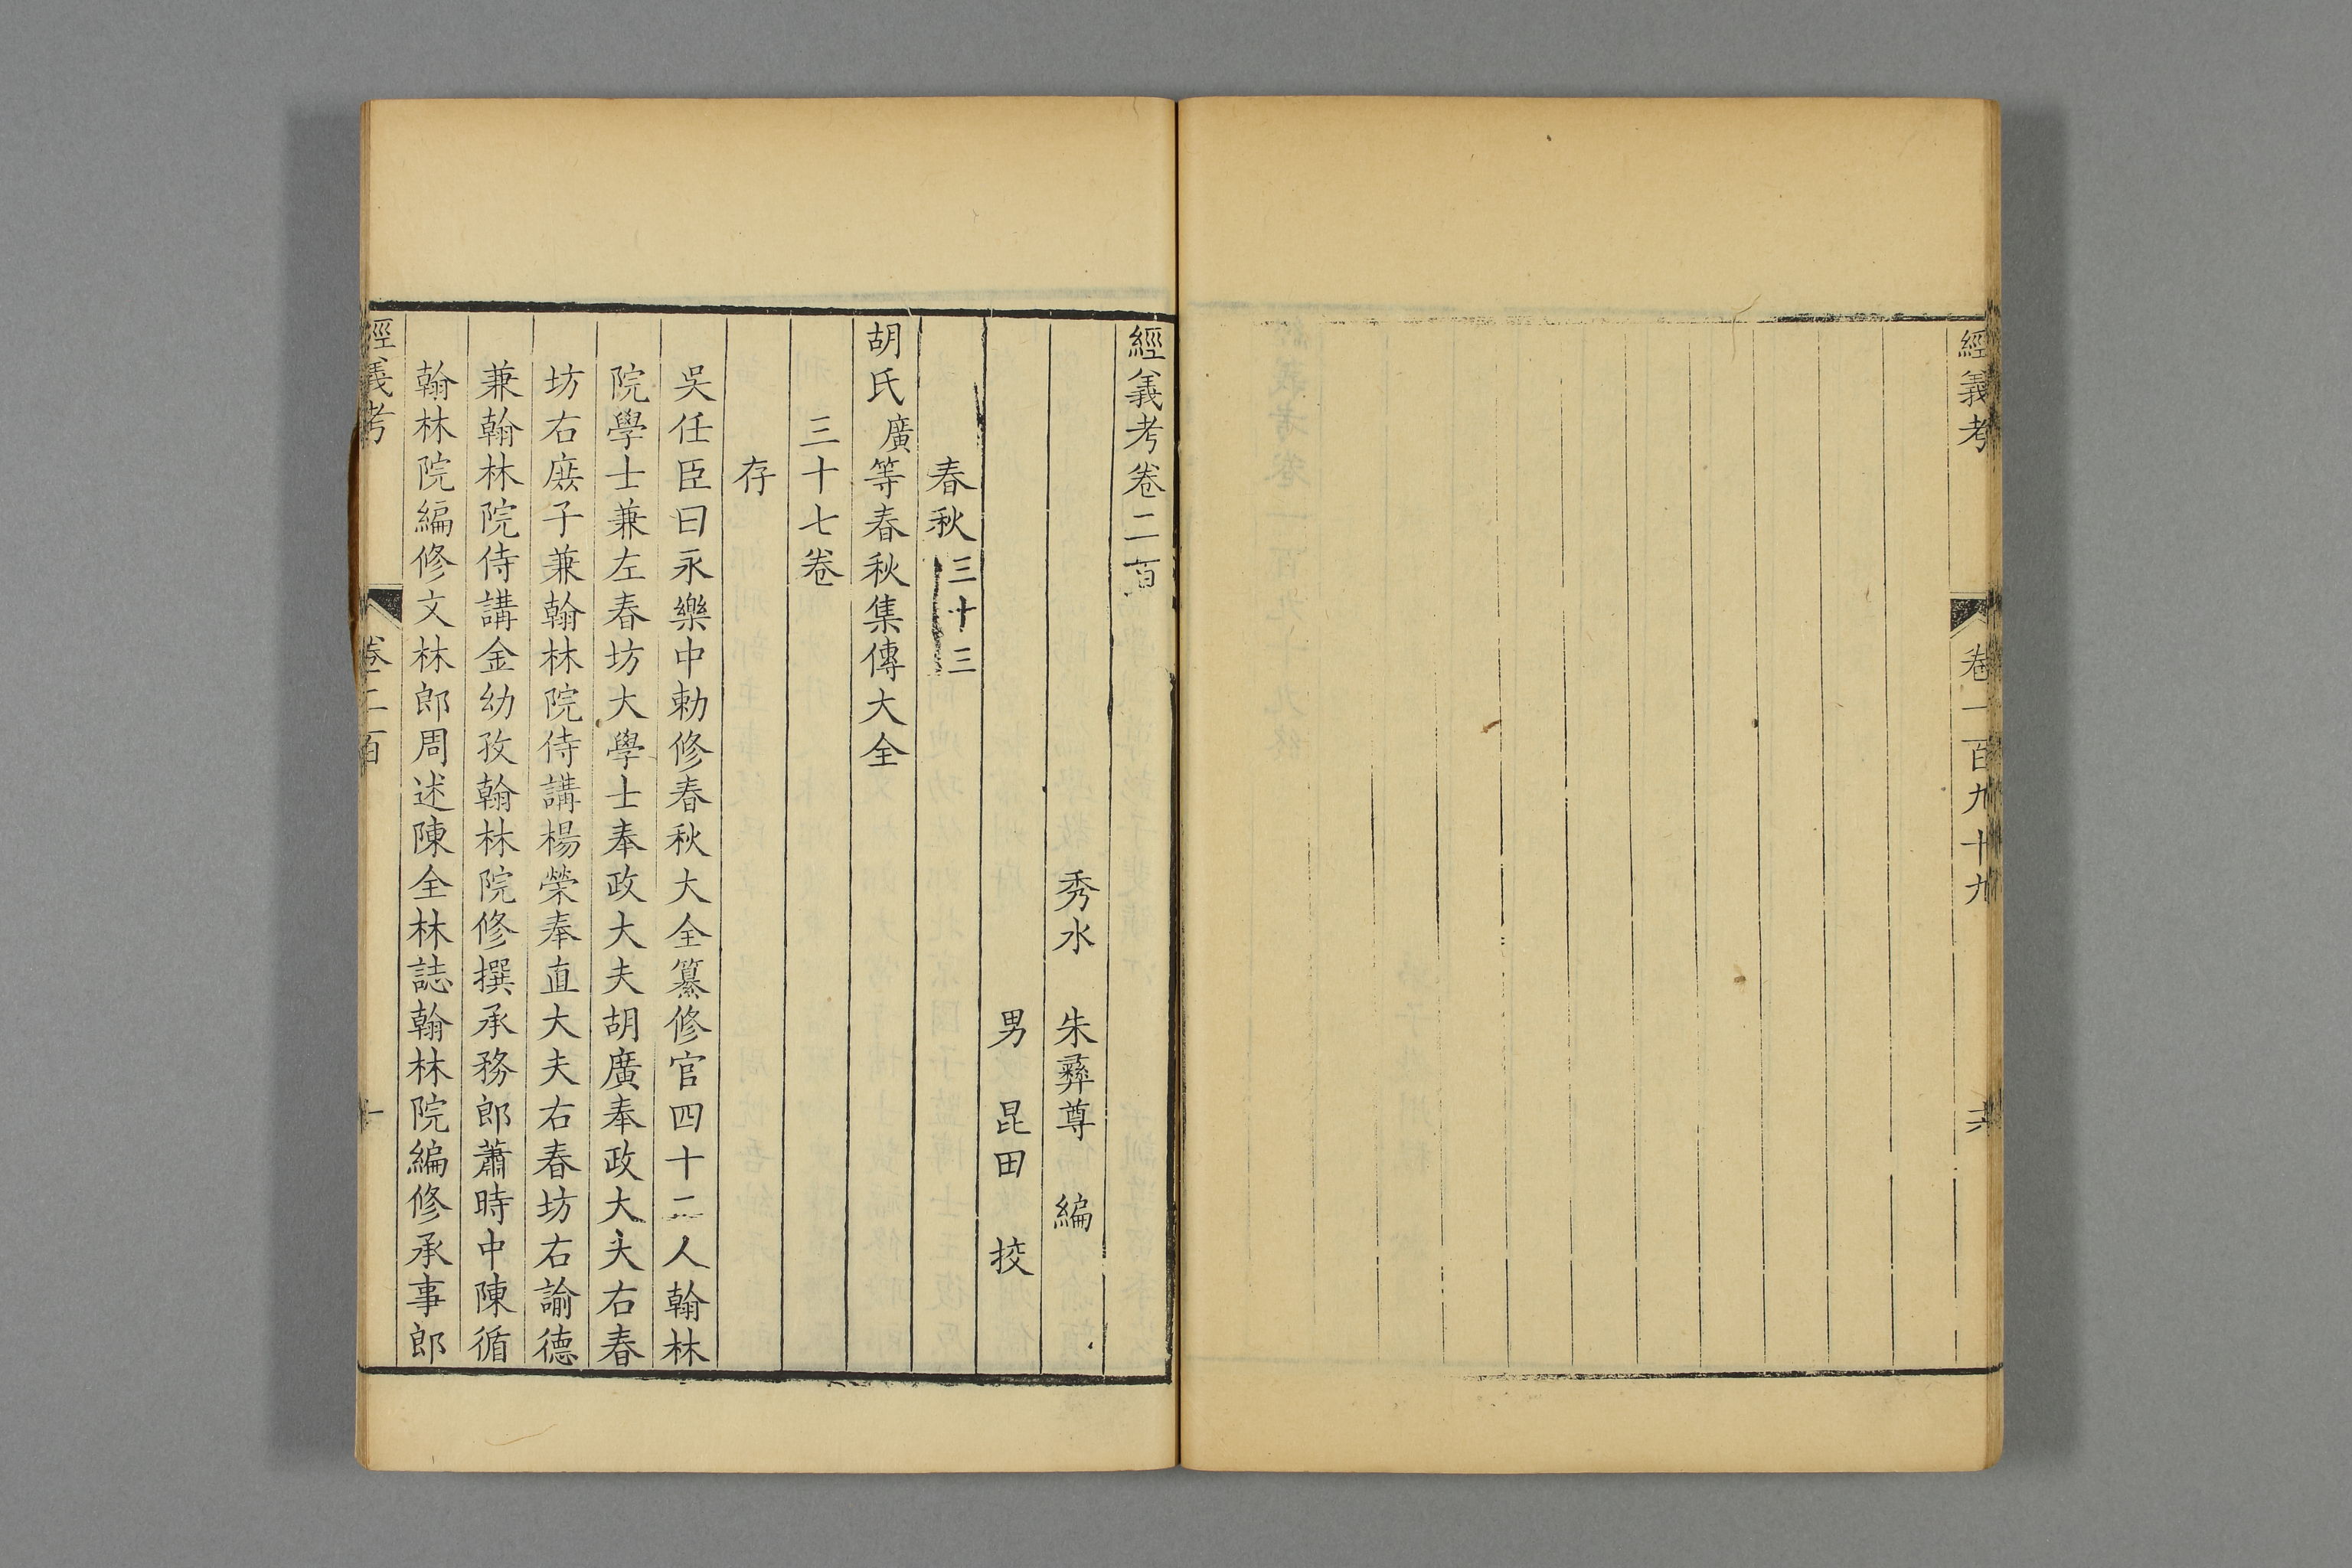 經義考
卷一百九十九
六
經義考卷二百
秀水 朱彝尊 編
男 昆田 挍
春秋三十三
胡氏廣等春秋集傳大全
三十七卷
存
吳任臣曰永樂中勅修春秋大全纂修官四十二人翰林
院學士兼左春坊大學士奉政大夫胡廣奉政大夫右春
坊右庶子兼翰林院侍講楊榮奉直大夫右春坊右諭德
兼翰林院侍講金幼孜翰林院修撰承務郎蕭時中陳循
翰林院編修文林郎周述陳全林誌翰林院編修承事郎
經義考
卷二百
一